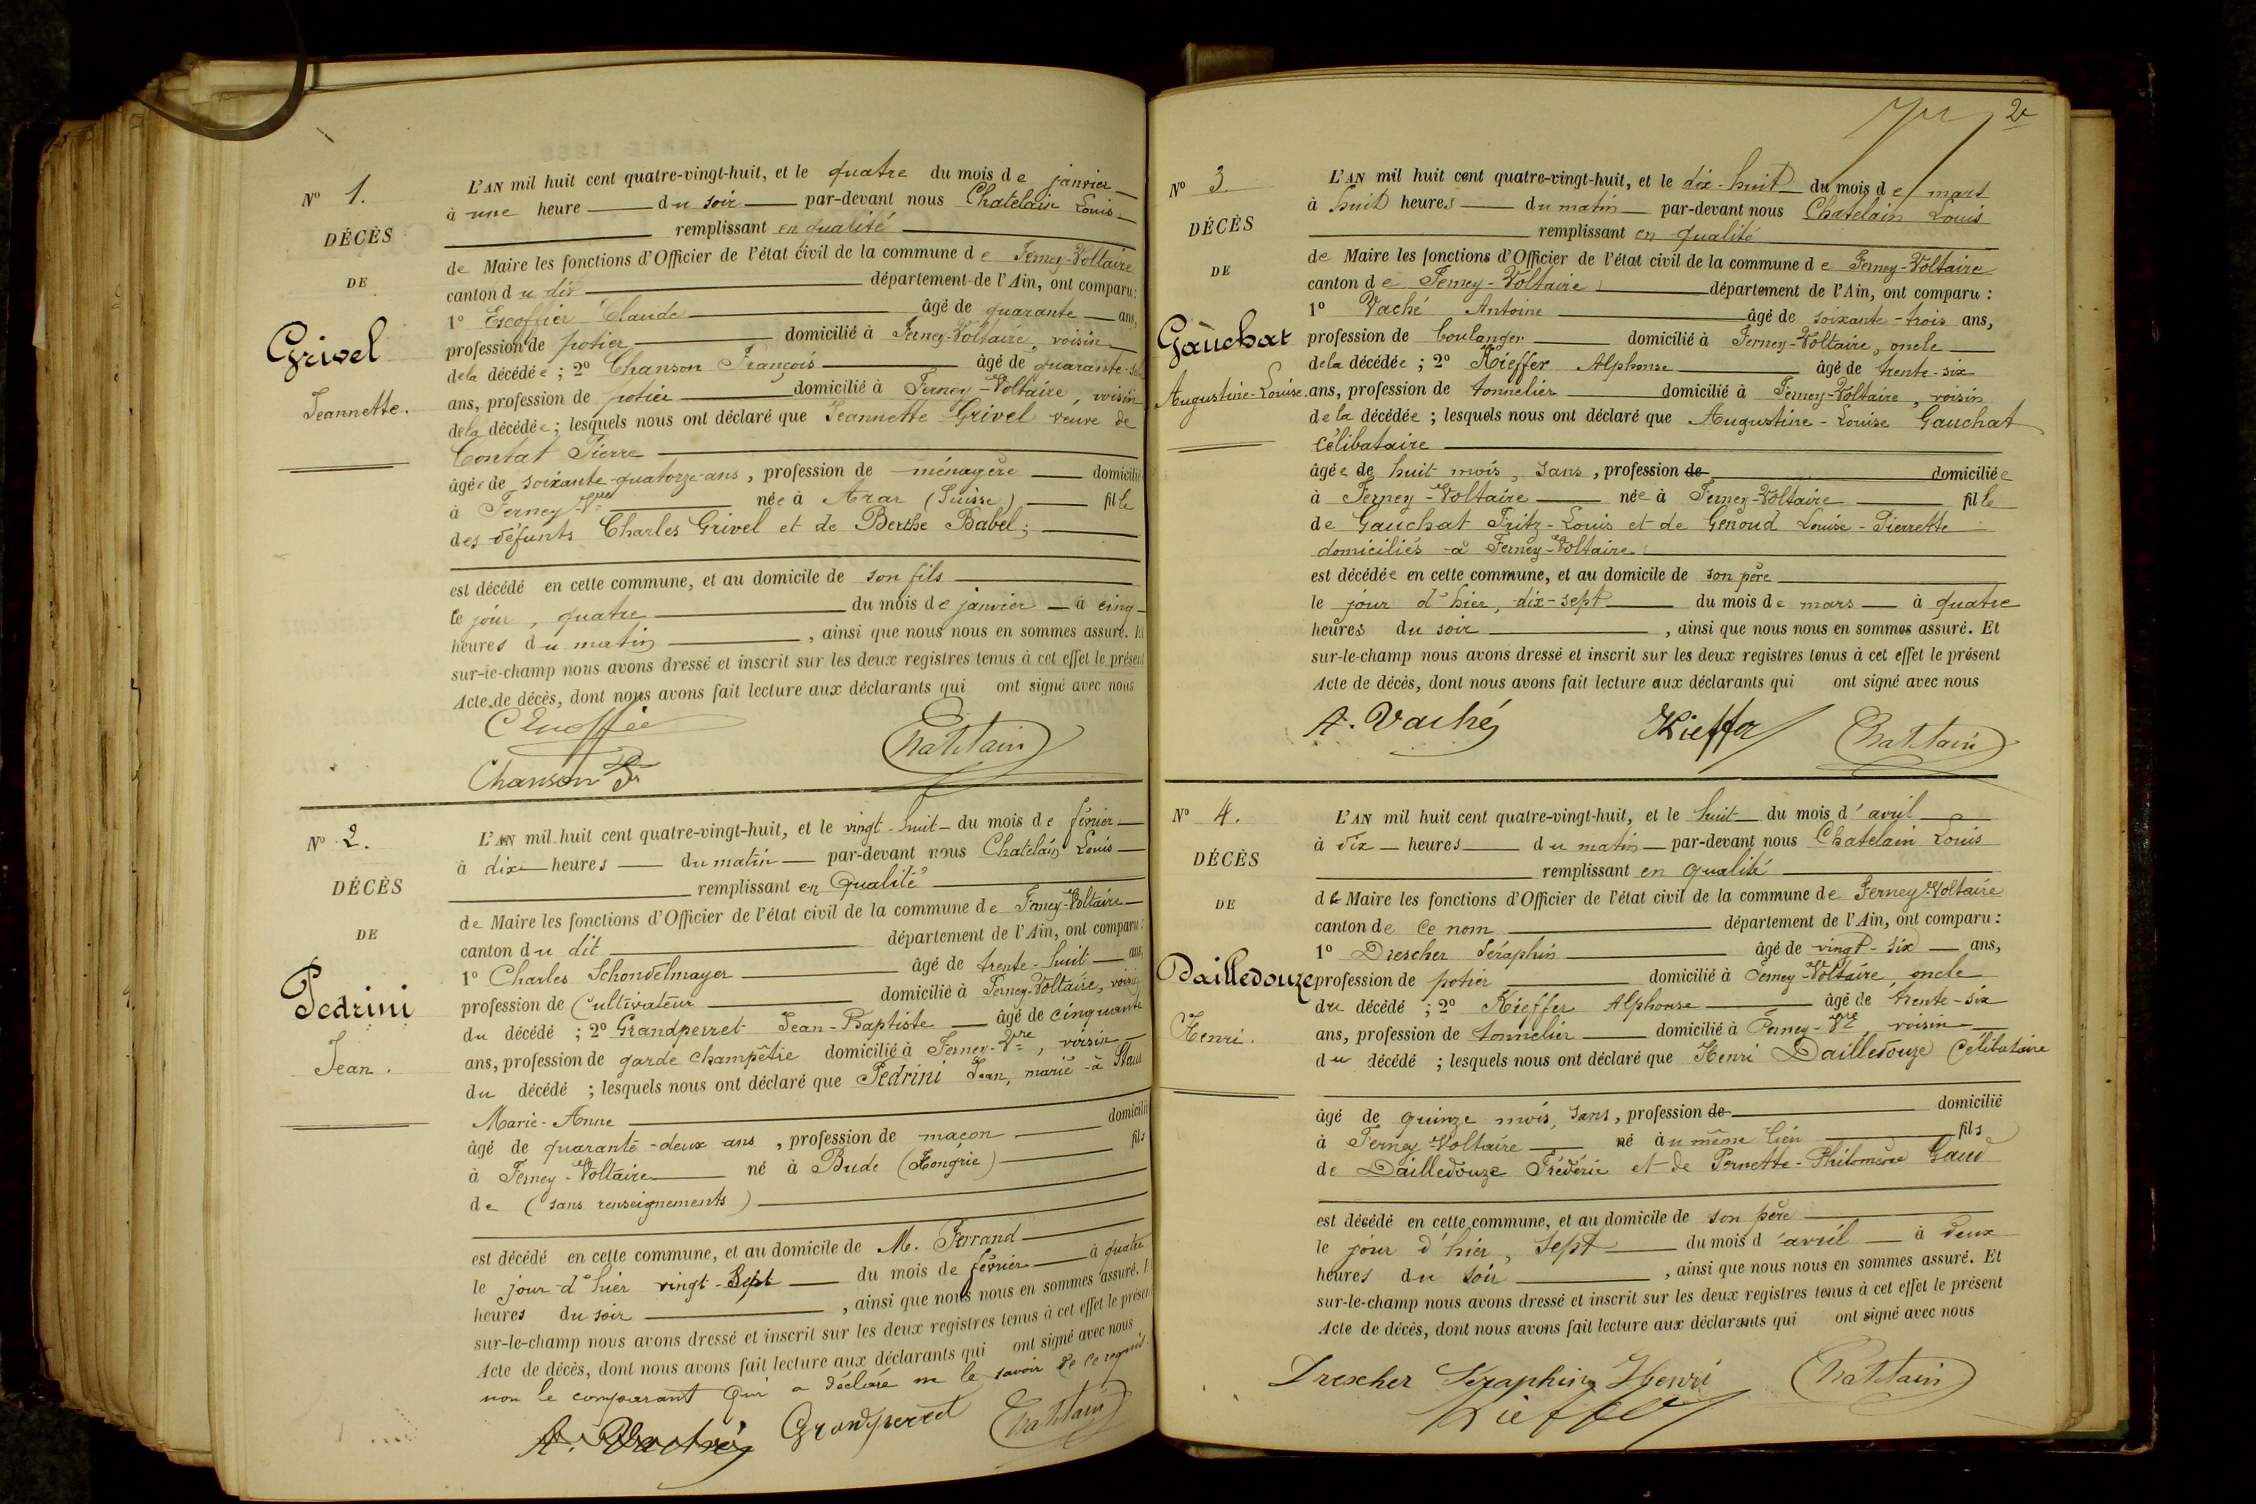 Nº 1.
DÉCÈS
DE
Grivel
Jeannette.
L'AN mil huit cent quatre-vingt-huit, et le quatre du mois de janvier
à une heure du soir par-devant nous Chatelain Louis
remplissant en qualité
de Maire les fonctions d'Officier de l'état civil de la commune de Ferney-Voltaire
canton du dit département de l'Ain, ont comparu :
1º Escoffier Claude âgé de quarante ans,
profession de potier domicilié à Ferney-Voltaire, voisin
de la décédée ; 2º Chanson François âgé de quarante-
ans, profession de potier domicilié à Ferney-Voltaire, voisin
de la décédée ; lesquels nous ont déclaré que Jeannette Grivel veuve de
Contat Pierre
âgée de soixante-quatorze ans, profession de ménagère domicilié
à Ferney-Vre née à Arar (Suisse) fille
des défunts Charles Grivel et de Berthe Babel ;
est décédé en cette commune, et au domicile de son fils
le jour, quatre du mois de janvier à cinq
heures du matin , ainsi que nous nous en sommes assuré. Et
sur-le-champ nous avons dressé et inscrit sur les deux registres tenus à cet effet le présent
Acte de décès, dont nous avons fait lecture aux déclarants qui ont signé avec nous
C Escoffier
Chatelain
Chanson Fr
Nº 2.
DÉCÈS
DE
Pedrini
Jean.
L'AN mil huit cent quatre-vingt-huit, et le vingt-huit du mois de février
à dix heures du matin par-devant nous Chatelain Louis
remplissant en Qualité
de Maire les fonctions d'Officier de l'état civil de la commune de Ferney-Voltaire
canton du dit département de l'Ain, ont comparu :
1º Charles Schondelmayer âgé de trente-huit ans,
profession de Cultivateur domicilié à Ferney-Voltaire, voisin
du décédé ; 2º Grandperret Jean-Baptiste âgé de cinquante
ans, profession de garde champêtre domicilié à Ferney-Vre, voisin
du décédé ; lesquels nous ont déclaré que Pedrini Jean, marié à
Marie-Anne
âgé de quarante-deux ans, profession de maçon domicilié
à Ferney-Voltaire né à Bude (Hongrie) fils
de (sans renseignements)
est décédé en cette commune, et au domicile de M. Ferrand
le jour d'hier vingt-Sept du mois de février à quatre
heures du soir , ainsi que nous nous en sommes assuré. Et
sur-le-champ nous avons dressé et inscrit sur les deux registres tenus à cet effet le présent
Acte de décès, dont nous avons fait lecture aux déclarants qui ont signé avec nous
non le comparant qui a déclaré ne le savoir de ce requis.
A. Vaché Grandperret Chatelain
2e
Nº 3.
DÉCÈS
DE
Gauchat
Augustine-Louise.
L'AN mil huit cent quatre-vingt-huit, et le dix-huit du mois de mars
à huit heures du matin par-devant nous Chatelain Louis
remplissant en qualité
de Maire les fonctions d'Officier de l'état civil de la commune de Ferney-Voltaire
canton de Ferney-Voltaire département de l'Ain, ont comparu :
1º Vaché Antoine âgé de soixante-trois ans,
profession de boulanger domicilié à Ferney-Voltaire, oncle
de la décédée ; 2º Kieffer Alphonse âgé de trente-six
ans, profession de tonnelier domicilié à Ferney-Voltaire, voisin
de la décédée ; lesquels nous ont déclaré que Augustine-Louise Gauchat
célibataire
âgée de huit mois, sans, profession de domiciliée
à Ferney-Voltaire née à Ferney-Voltaire fille
de Gauchat Fritz-Louis et de Genoud Louise-Pierrette
domiciliés à Ferney-Voltaire
est décédée en cette commune, et au domicile de son père
le jour d'hier, dix-sept du mois de mars à quatre
heures du soir , ainsi que nous nous en sommes assuré. Et
sur-le-champ nous avons dressé et inscrit sur les deux registres tenus à cet effet le présent
Acte de décès, dont nous avons fait lecture aux déclarants qui ont signé avec nous
A. Vaché Kieffer Chatelain
Nº 4.
DÉCÈS
DE
Dailledouze
Henri.
L'AN mil huit cent quatre-vingt-huit, et le huit du mois d'avril
à dix heures du matin par-devant nous Chatelain Louis
remplissant en qualité
de Maire les fonctions d'Officier de l'état civil de la commune de Ferney-Voltaire
canton de ce nom département de l'Ain, ont comparu :
1º Drescher Séraphin âgé de vingt-six ans,
profession de potier domicilié à Ferney-Voltaire, oncle
du décédé ; 2º Kieffer Alphonse âgé de trente-six
ans, profession de tonnelier domicilié à Ferney-Vre, voisin
du décédé ; lesquels nous ont déclaré que Henri Dailledouze Célibataire
âgé de quinze mois, sans, profession de domicilié
à Ferney-Voltaire né au même lieu fils
de Dailledouze Frédéric et de Pernette-Philomène Gaud
est décédé en cette commune, et au domicile de son père
le jour d'hier, sept du mois d'avril à deux
heures du soir , ainsi que nous nous en sommes assuré. Et
sur-le-champ nous avons dressé et inscrit sur les deux registres tenus à cet effet le présent
Acte de décès, dont nous avons fait lecture aux déclarants qui ont signé avec nous
Drescher Séraphin Henri Chatelain
Kieffer